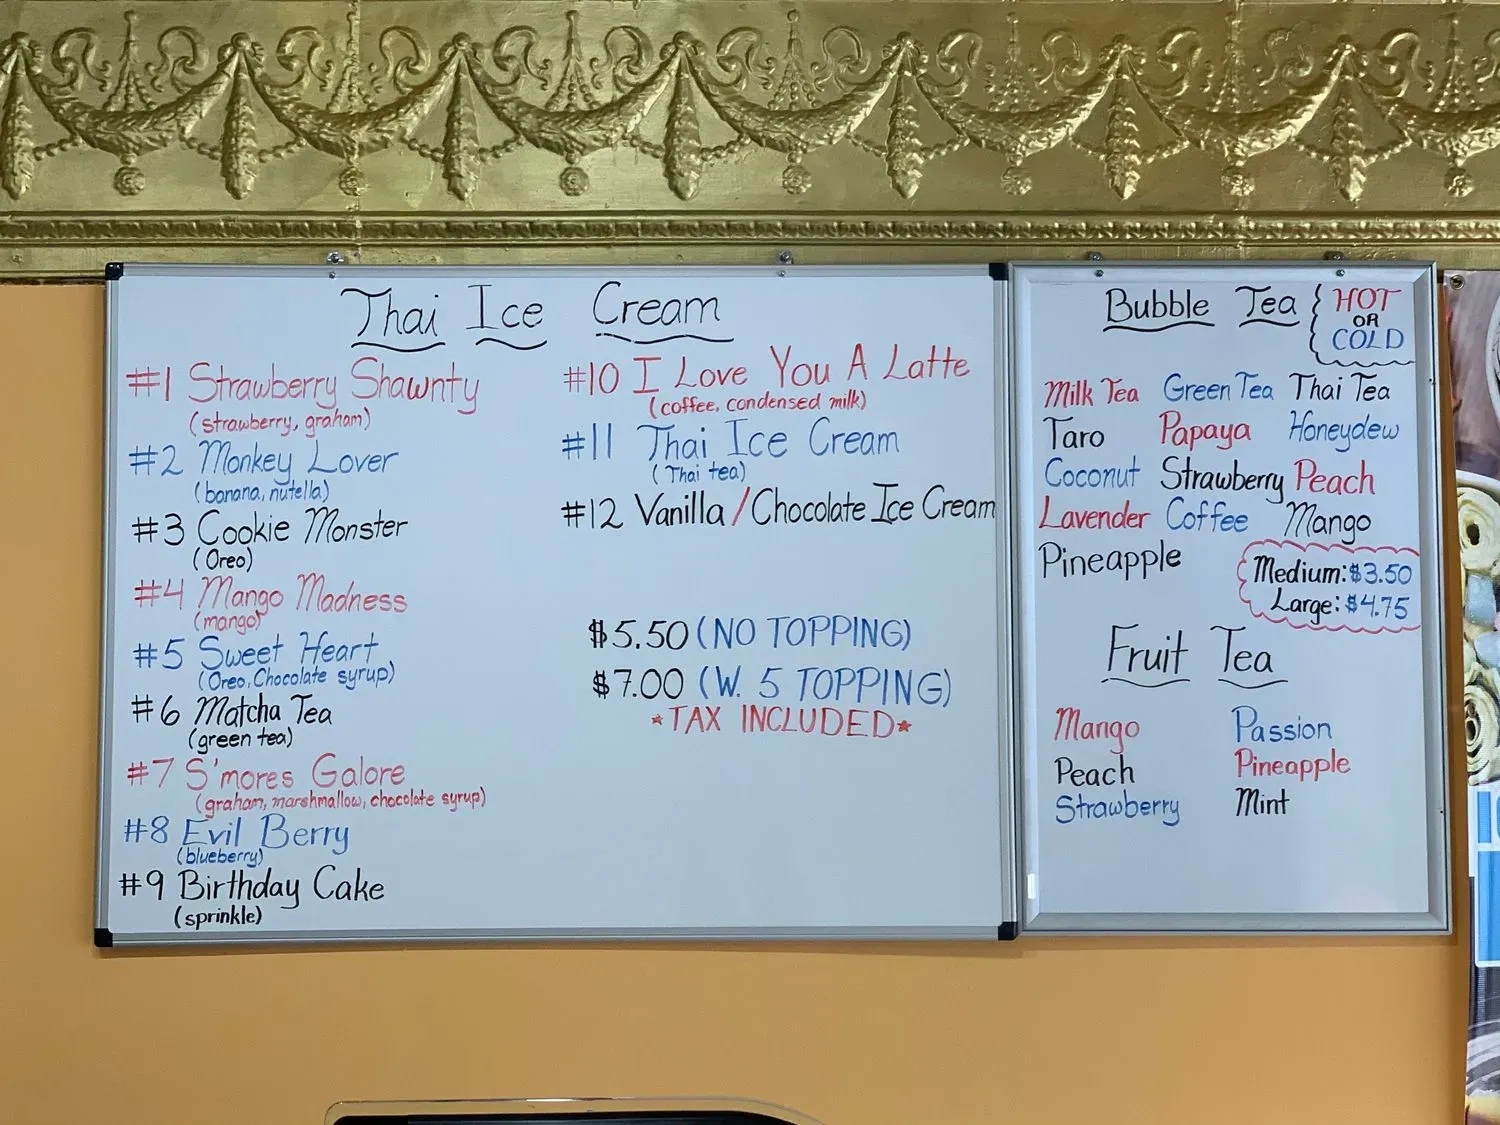 Thai Ice Cream
#1 Strawberry Shawnty
(strawberry, graham)
#2 Monkey Lover
(banana, nutella)
#3 Cookie Monster
(Oreo)
#4 Mango Madness
(mango)
#5 Sweet Heart
(Oreo, Chocolate syrup)
#6 Matcha Tea
(green tea)
#7 S'mores Galore
(graham, marshmallow, chocolate syrup)
#8 Evil Berry
(blueberry)
#9 Birthday Cake
(sprinkle)
#10 I Love You A Latte
(coffee, condensed milk)
#11 Thai Ice Cream
(Thai tea)
#12 Vanilla/Chocolate Ice Cream
$5.50 (NO TOPPING)
$7.00 (W. 5 TOPPING)
*TAX INCLUDED*
Bubble Tea { HOT
OR
COLD
Milk Tea Green Tea Thai Tea
Taro Papaya Honeydew
Coconut Strawberry Peach
Lavender Coffee Mango
Pineapple
Medium: $3.50
Large: $4.75
Fruit Tea
Mango Passion
Peach Pineapple
Strawberry Mint